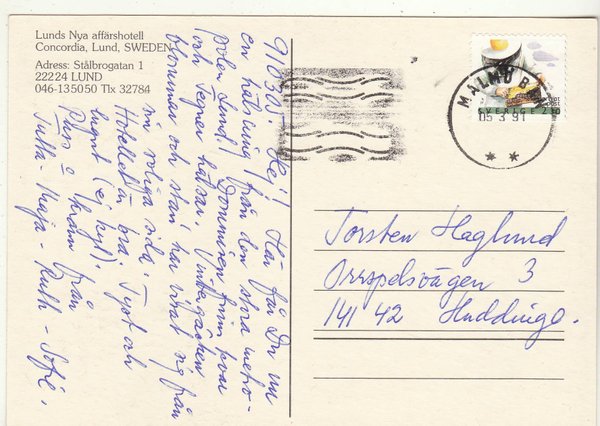 Lunds Nya affärshotell
Concordia, Lund, SWEDEN
Adress: Stålbrogatan 1
22224 LUND
046-135050 Tlx 32784
MALMÖ B
05 3 91
SVERIGE 2.50
910301. Hej! Här får Du nu
en hälsning från den stora metro-
polen Lund! Domkyrkan finns kvar
och Tegnér hälsar. Vinbergsäcken
blommar och stan har visat sig från
sin soliga sida.
Hotellet är bra. Tyst och
lugnt (ej hyl).
Puss o kram från
Tutta-Maja-Ruth-Sofie.
Torsten Haglund
Orrspelsvägen 3
141 42 Huddinge.